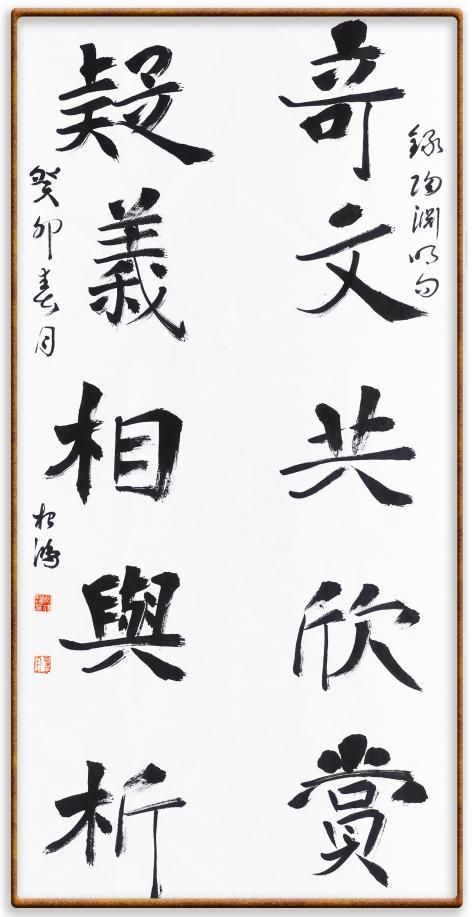 錄陶淵明句
奇文共欣賞
疑義相與析
癸卯春月
松鴻